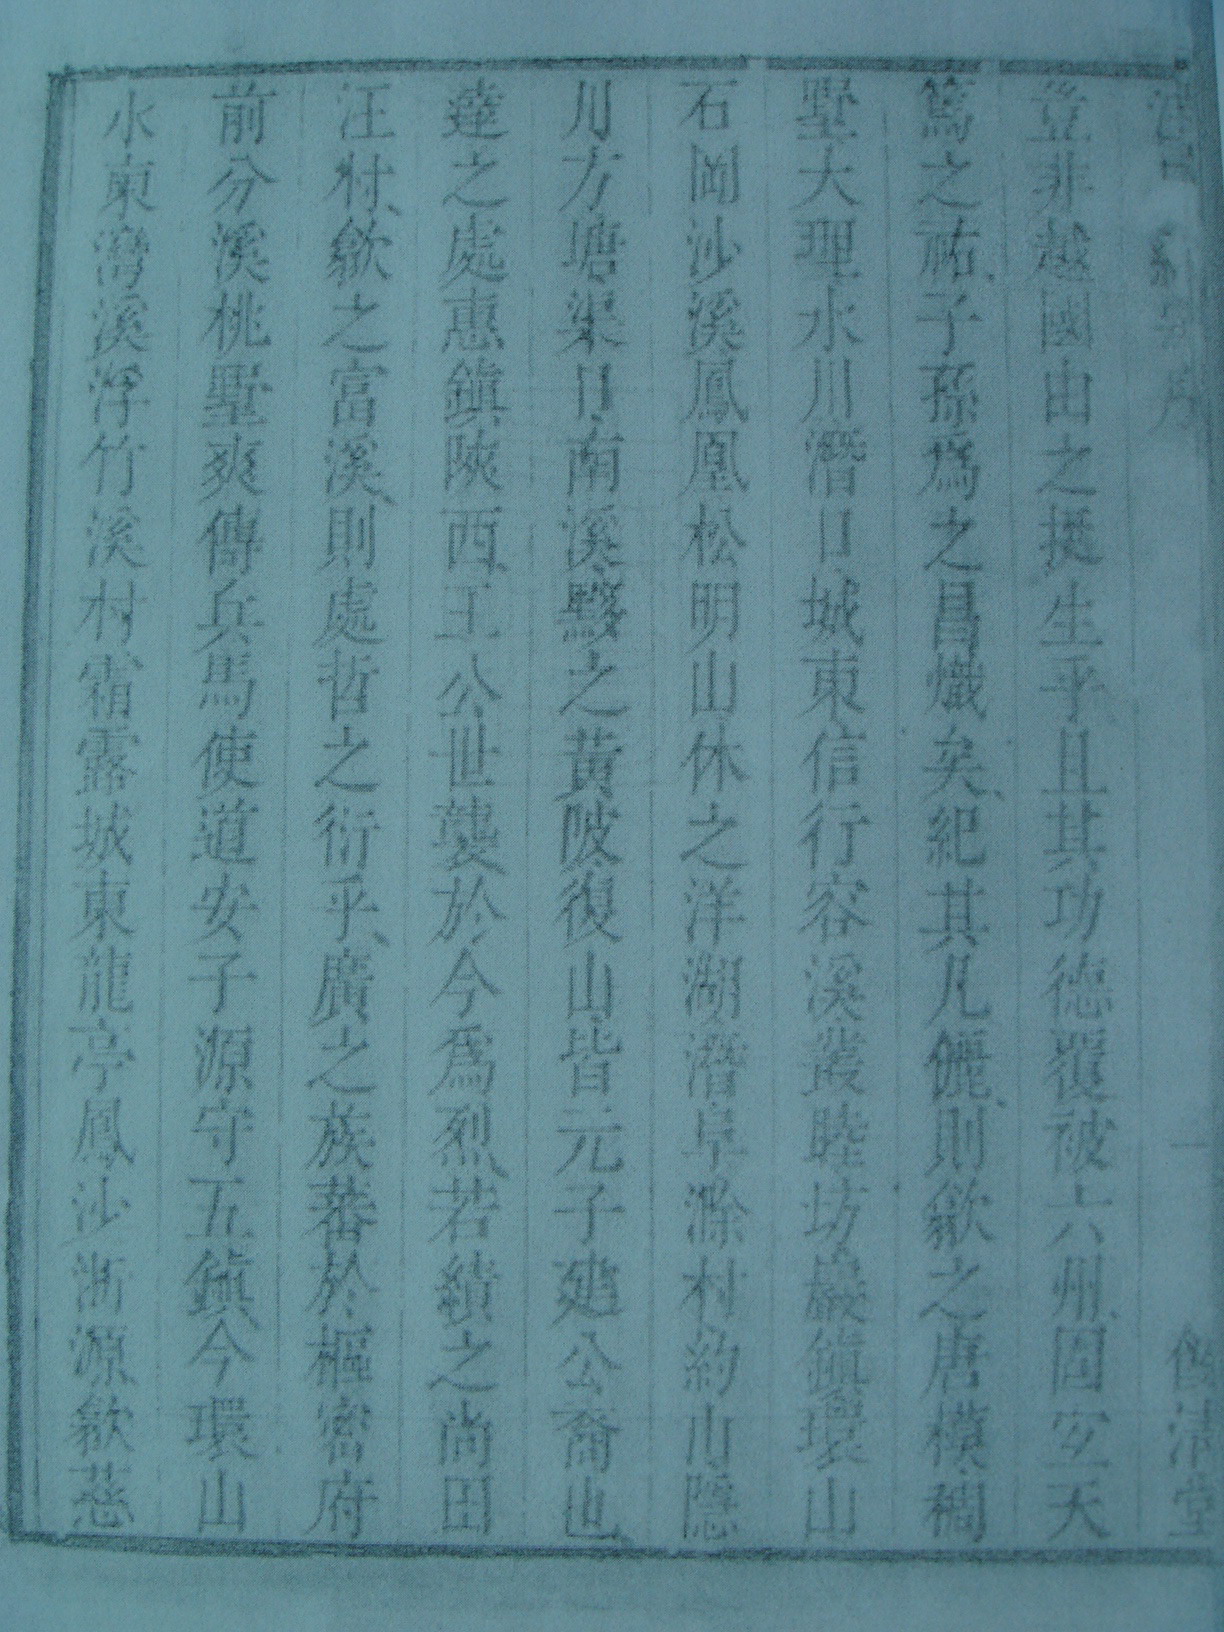 豈非越國由之挺生乎且其功德覆被六州固宜天
篤之祐子孫爲之昌熾矣紀其凡儷則歙之唐模稠
墅大理水川潛口城東信行容溪叢睦坊巖鎮環山
石岡沙溪鳳凰松明山休之洋湖潛阜滁村約山隱
川方塘渠口南溪黟之黃陂復山皆元子建公裔也
達之處惠鎮陝西王公世襲於今爲烈若績之尚田
汪村歙之富溪則處哲之衍乎廣之族蕃於樞密府
前分溪桃墅爽傳兵馬使道安子源守五鎮今環山
水東灣溪浮竹溪村霜露城東龍亭鳳沙浙源歙慈